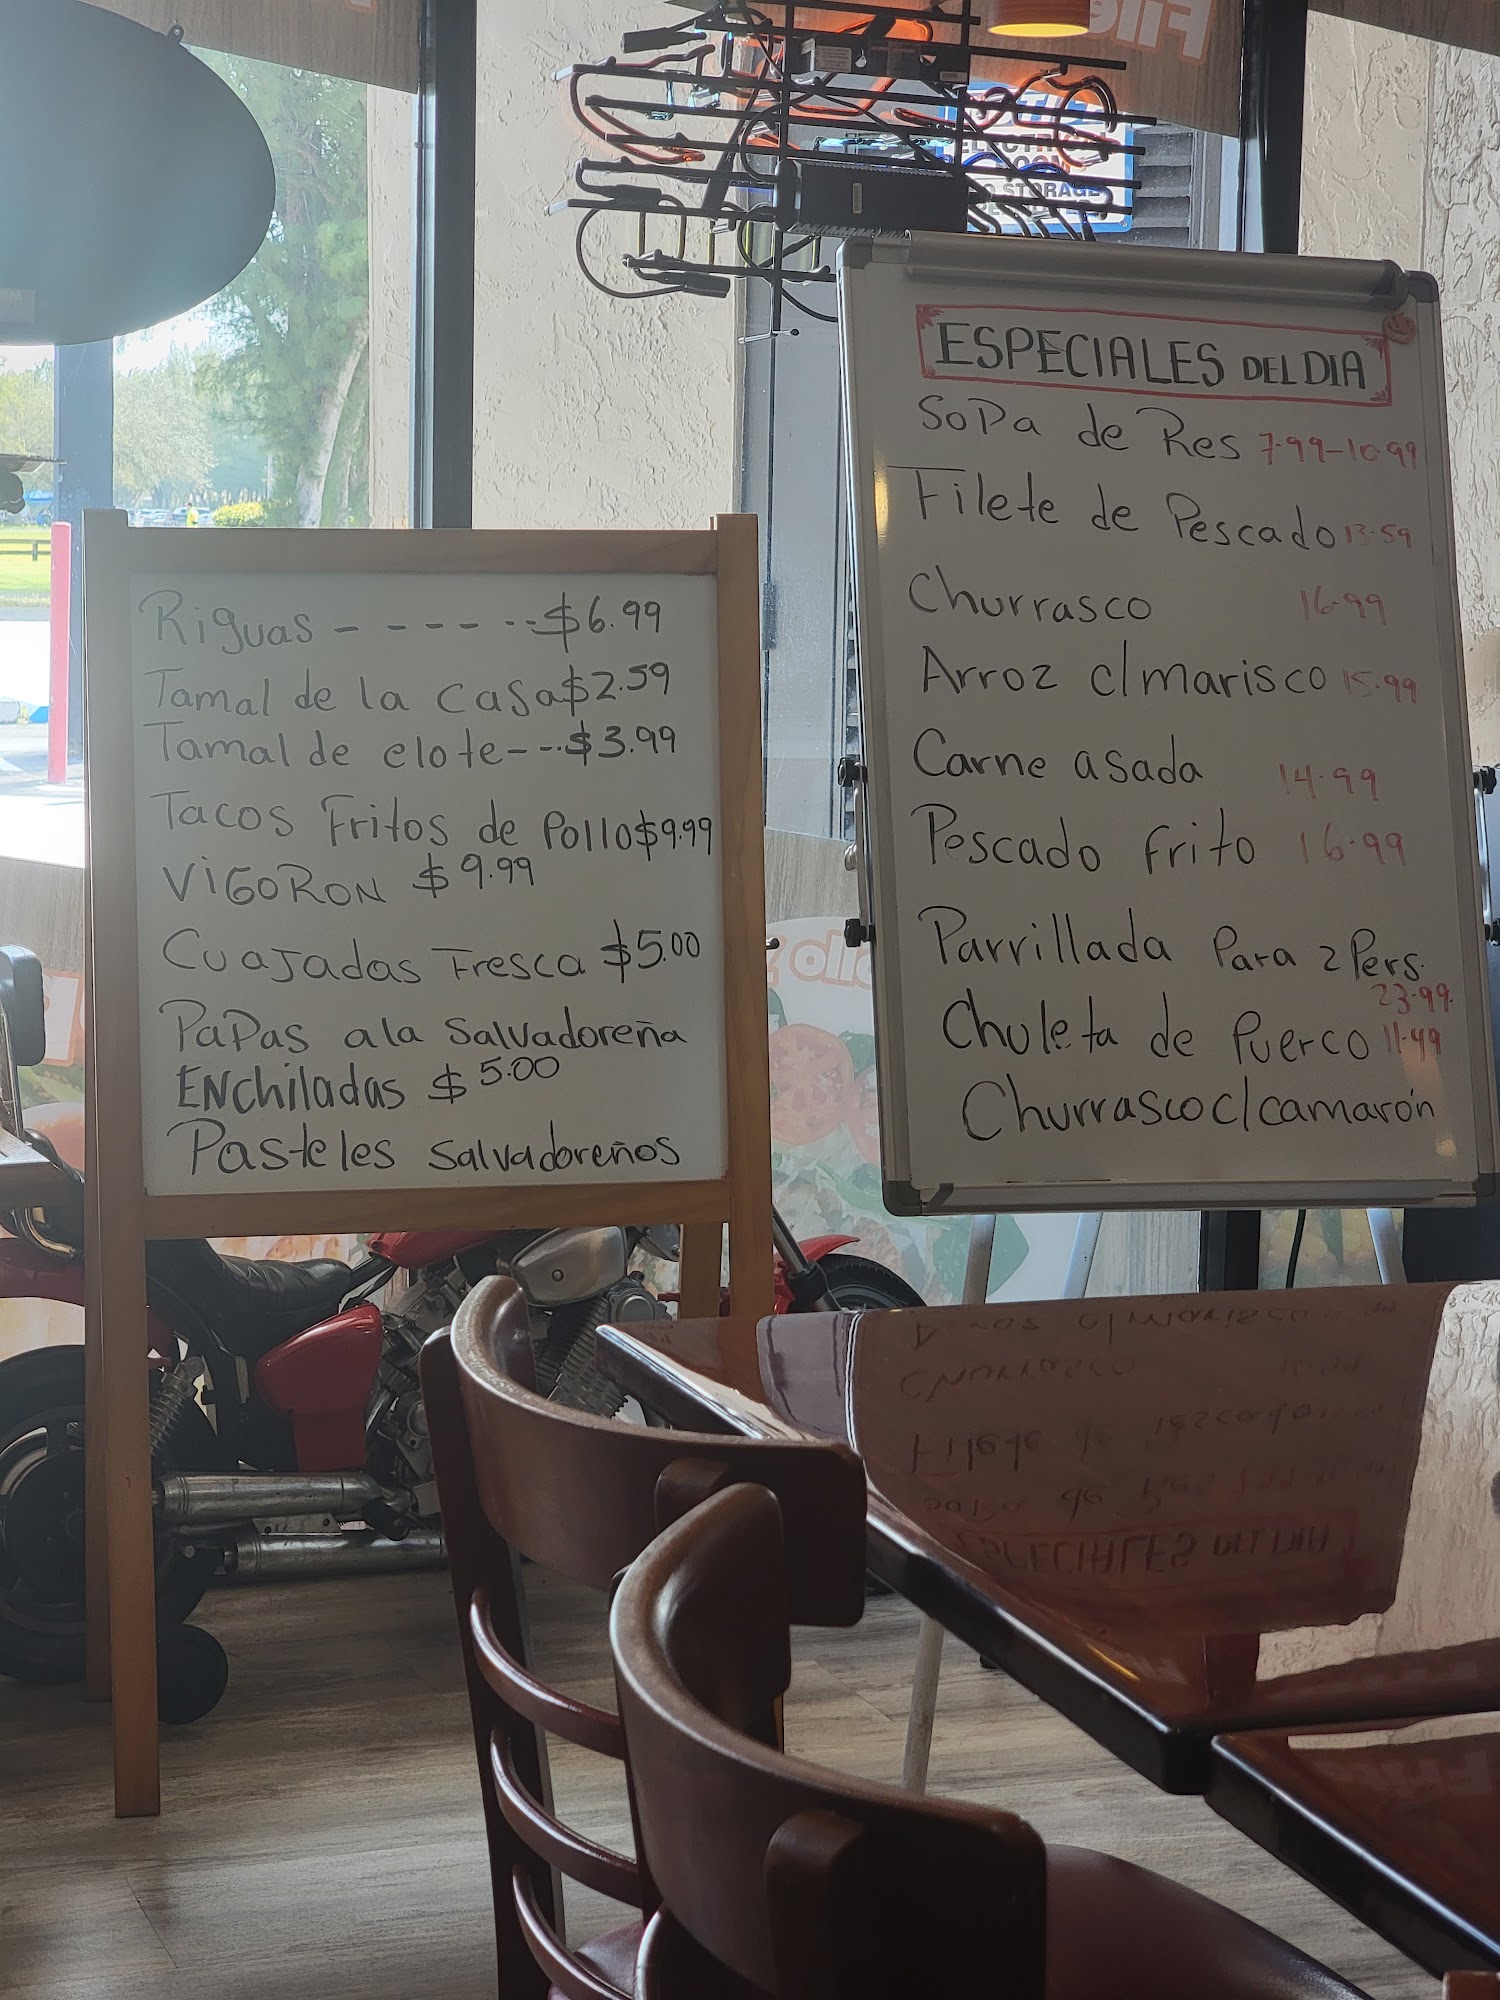 Riguas - - - - - -- $6.99
Tamal de la casa $2.59
Tamal de elote - - -- $3.99
Tacos Fritos de Pollo $9.99
VIGORON $9.99
Cuajadas Fresca $5.00
Papas a la Salvadoreña
ENchiladas $5.00
Pasteles Salvadoreños
ESPECIALES DEL DIA
Sopa de Res 7.99-10.99
Filete de Pescado 13.59
Churrasco 16.99
Arroz c/marisco 15.99
Carne asada 14.99
Pescado frito 16.99
Parrillada Para 2 Pers.
23.99
Chuleta de Puerco 11.49
Churrasco c/camarón